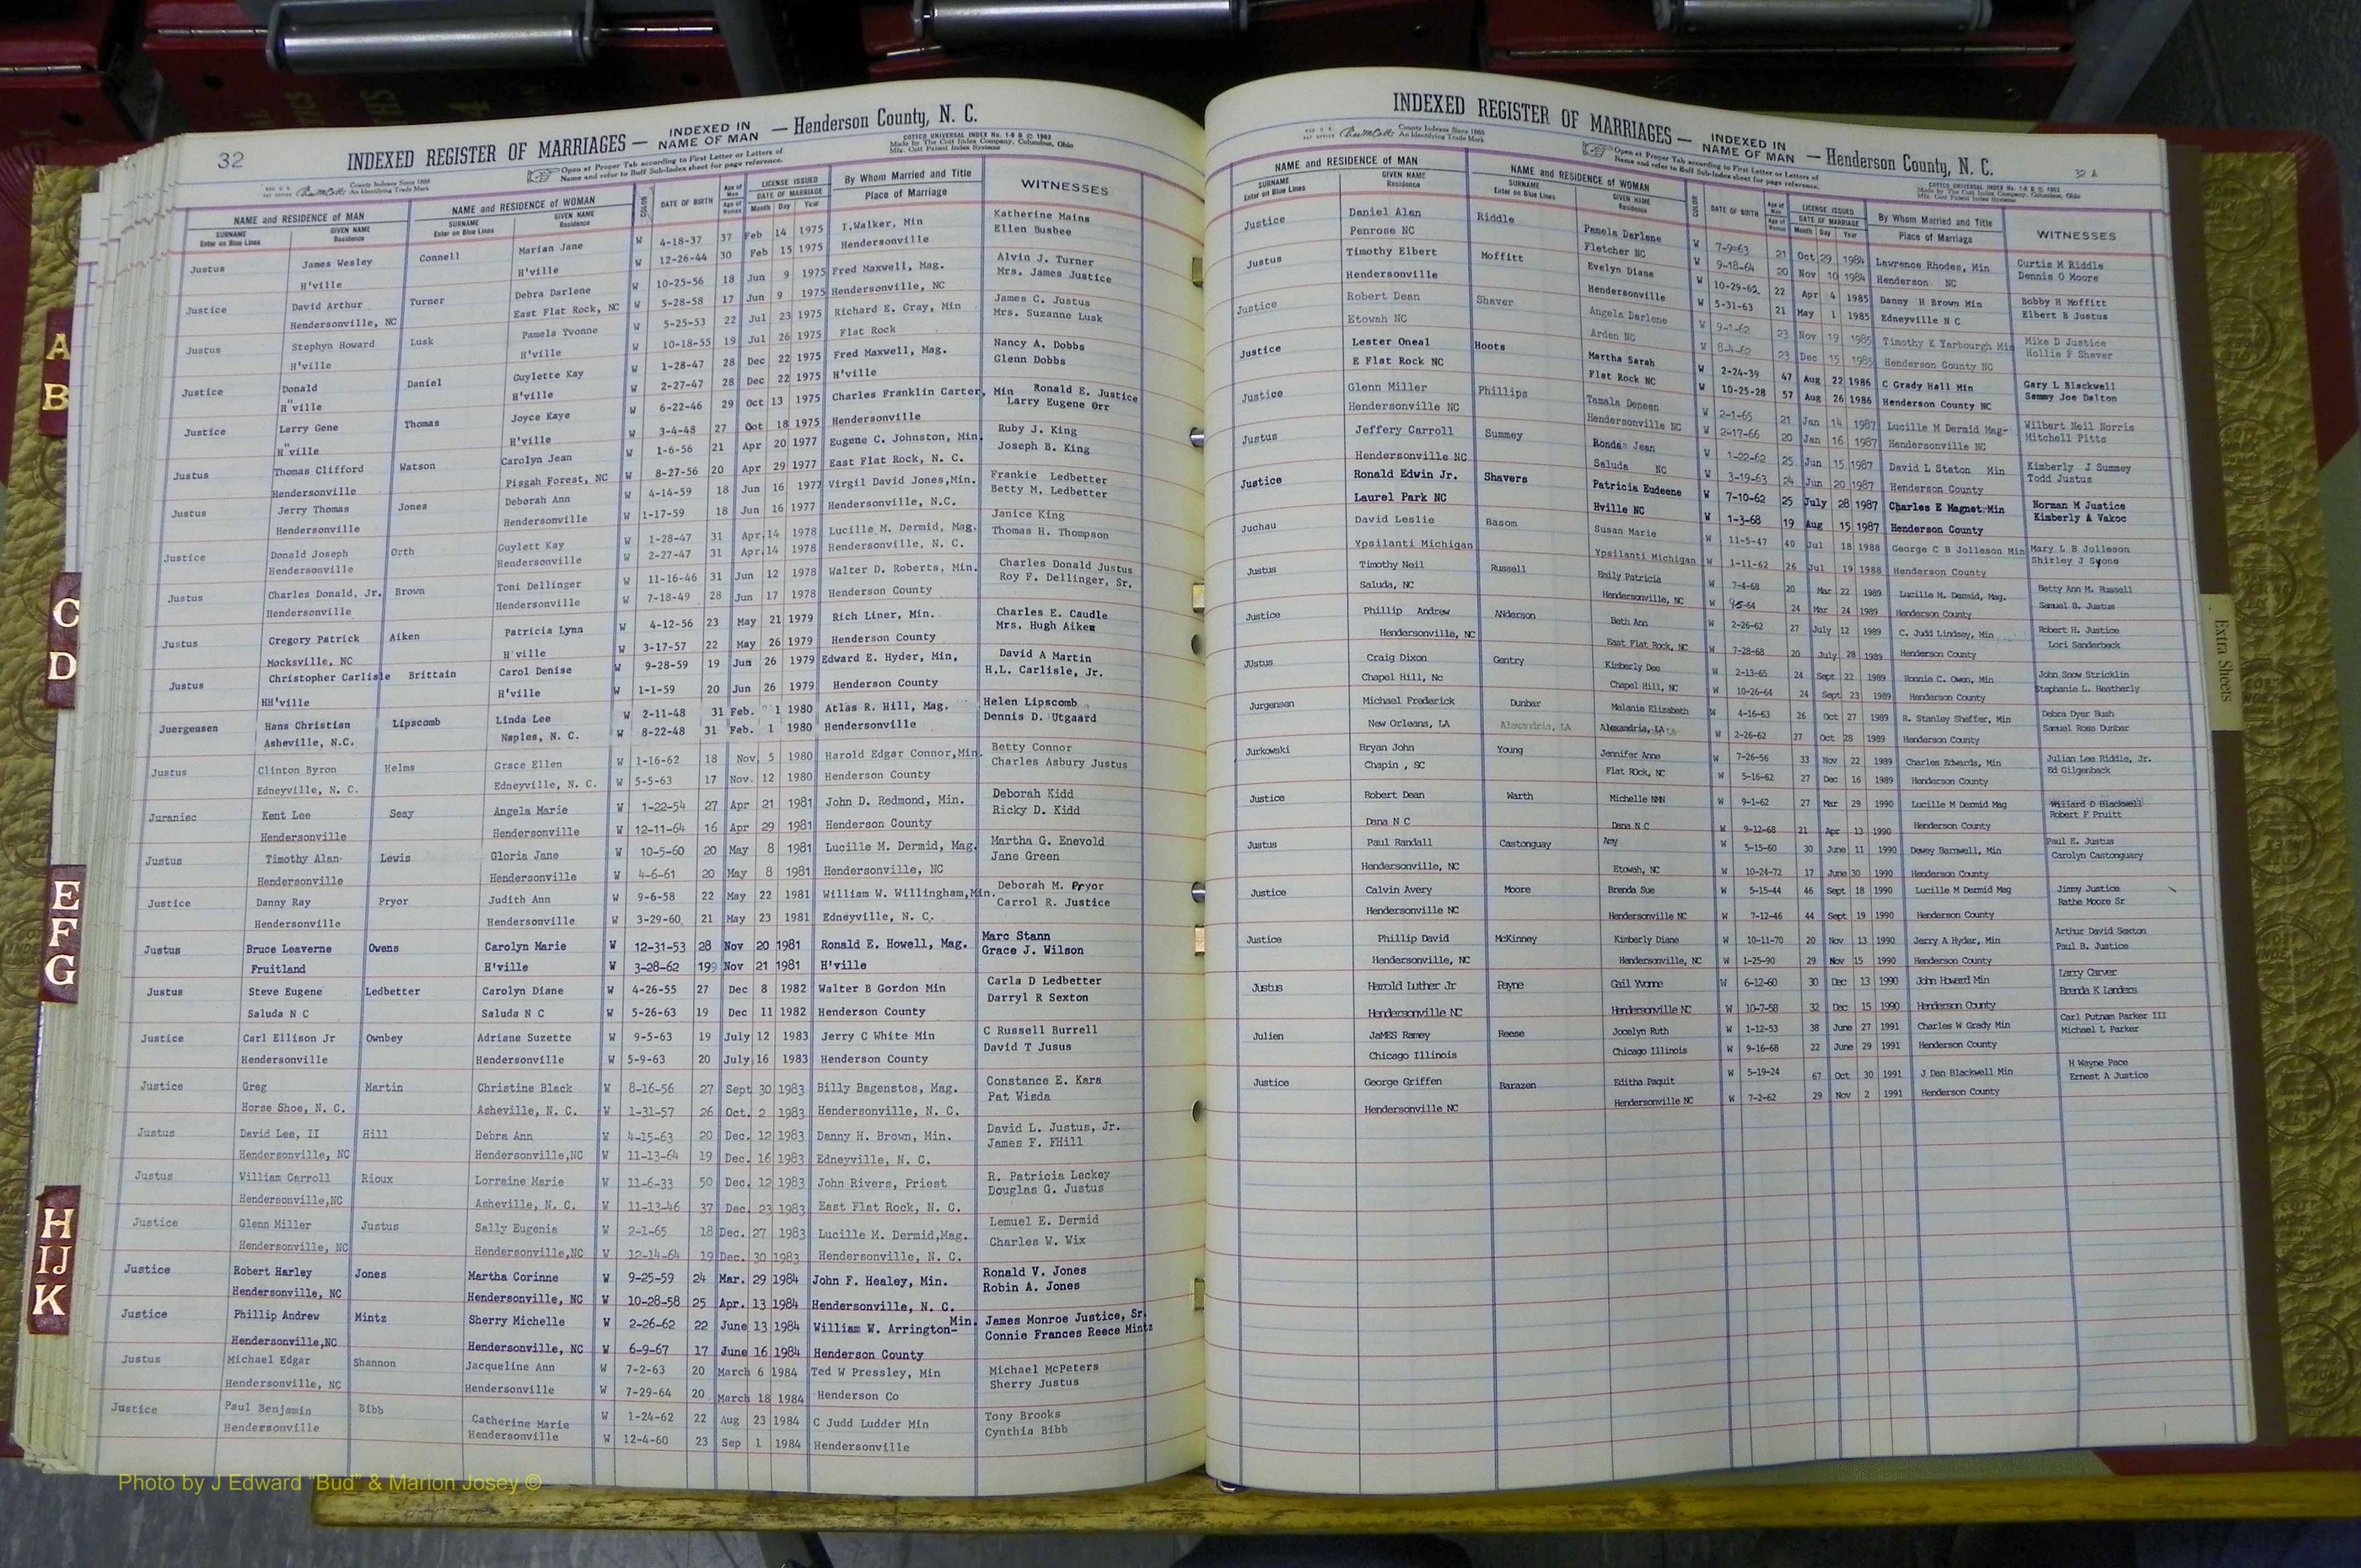 32
INDEXED REGISTER OF MARRIAGES — INDEXED IN NAME OF MAN — Henderson County, N. C.
Open at Proper Tab according to First Letter or Letters of
Name and refer to Buff Sub-Index sheet for page reference.
COTTCO UNIVERSAL INDEX No. 1-8 B © 1962
Made by The Cott Index Company, Columbus, Ohio
Mfg. Cott Patent Index Systems
County Indexes Since 1888
An Identifying Trade Mark
NAME and RESIDENCE of MAN NAME and RESIDENCE of WOMAN COLOR DATE OF BIRTH Age of Man LICENSE ISSUED By Whom Married and Title WITNESSES
SURNAME GIVEN NAME SURNAME GIVEN NAME Age of Woman DATE OF MARRIAGE Place of Marriage
Enter on Blue Lines Residence Enter on Blue Lines Residence Month Day Year
Justus James Wesley Connell Marian Jane W 4-18-37 37 Feb 14 1975 I.Walker, Min Katherine Mains
H'ville H'ville W 12-26-44 30 Feb 15 1975 Hendersonville Ellen Busbee
Justice David Arthur Turner Debra Darlene W 10-25-56 18 Jun 9 1975 Fred Maxwell, Mag. Alvin J. Turner
Hendersonville, NC East Flat Rock, NC W 5-28-58 17 Jun 9 1975 Hendersonville, NC Mrs. James Justice
Justus Stephyn Howard Lusk Pamela Yvonne W 5-25-53 22 Jul 23 1975 Richard E. Gray, Min James C. Justus
H'ville H'ville W 10-18-55 19 Jul 26 1975 Flat Rock Mrs. Suzanne Lusk
Justice Donald Daniel Guylette Kay W 1-28-47 28 Dec 22 1975 Fred Maxwell, Mag. Nancy A. Dobbs
H"ville H'ville W 2-27-47 28 Dec 22 1975 H'ville Glenn Dobbs
Justice Larry Gene Thomas Joyce Kaye W 6-22-46 29 Oct 13 1975 Charles Franklin Carter, Min Ronald E. Justice
H"ville H'ville W 3-4-48 27 Oct 18 1975 Hendersonville Larry Eugene Orr
Justus Thomas Clifford Watson Carolyn Jean W 1-6-56 21 Apr 20 1977 Eugene C. Johnston, Min. Ruby J. King
Hendersonville Pisgah Forest, NC W 8-27-56 20 Apr 29 1977 East Flat Rock, N. C. Joseph B. King
Justus Jerry Thomas Jones Deborah Ann W 4-14-59 18 Jun 16 1977 Virgil David Jones,Min. Frankie Ledbetter
Hendersonville Hendersonville W 1-17-59 18 Jun 16 1977 Hendersonville, N.C. Betty M. Ledbetter
Justice Donald Joseph Orth Guylett Kay W 1-28-47 31 Apr.14 1978 Lucille M. Dermid, Mag. Janice King
Hendersonville Hendersonville W 2-27-47 31 Apr.14 1978 Hendersonville, N. C. Thomas H. Thompson
Justus Charles Donald, Jr. Brown Toni Dellinger W 11-16-46 31 Jun 12 1978 Walter D. Roberts, Min. Charles Donald Justus
Hendersonville Hendersonville W 7-18-49 28 Jun 17 1978 Henderson County Roy F. Dellinger, Sr.
Justus Gregory Patrick Aiken Patricia Lynn W 4-12-56 23 May 21 1979 Rich Liner, Min. Charles E. Caudle
Mocksville, NC H'ville W 3-17-57 22 May 26 1979 Henderson County Mrs. Hugh Aiken
Justus Christopher Carlisle Brittain Carol Denise W 9-28-59 19 Jun 26 1979 Edward E. Hyder, Min, David A Martin
HH'ville H'ville W 1-1-59 20 Jun 26 1979 Henderson County H.L. Carlisle, Jr.
Juergensen Hans Christian Lipscomb Linda Lee W 2-11-48 31 Feb. 1 1980 Atlas R. Hill, Mag. Helen Lipscomb
Asheville, N.C. Naples, N. C. W 8-22-48 31 Feb. 1 1980 Hendersonville Dennis D. Utgaard
Justus Clinton Byron Helms Grace Ellen W 1-16-62 18 Nov. 5 1980 Harold Edgar Connor,Min. Betty Connor
Edneyville, N. C. Edneyville, N. C. W 5-5-63 17 Nov. 12 1980 Henderson County Charles Asbury Justus
Juraniec Kent Lee Seay Angela Marie W 1-22-54 27 Apr 21 1981 John D. Redmond, Min. Deborah Kidd
Hendersonville Hendersonville W 12-11-64 16 Apr 29 1981 Henderson County Ricky D. Kidd
Justus Timothy Alan Lewis Gloria Jane W 10-5-60 20 May 8 1981 Lucille M. Dermid, Mag. Martha G. Enevold
Hendersonville Hendersonville W 4-6-61 20 May 8 1981 Hendersonville, NC Jane Green
Justice Danny Ray Pryor Judith Ann W 9-6-58 22 May 22 1981 William W. Willingham,Min. Deborah M. Pryor
Hendersonville Hendersonville W 3-29-60 21 May 23 1981 Edneyville, N. C. Carrol R. Justice
Justus Bruce Leaverne Owens Carolyn Marie W 12-31-53 28 Nov 20 1981 Ronald E. Howell, Mag. Marc Stann
Fruitland H'ville W 3-28-62 199 Nov 21 1981 H'ville Grace J. Wilson
Justus Steve Eugene Ledbetter Carolyn Diane W 4-26-55 27 Dec 8 1982 Walter B Gordon Min Carla D Ledbetter
Saluda N C Saluda N C W 5-26-63 19 Dec 11 1982 Henderson County Darryl R Sexton
Justice Carl Ellison Jr Ownbey Adriane Suzette W 9-5-63 19 July 12 1983 Jerry C White Min C Russell Burrell
Hendersonville Hendersonville W 5-9-63 20 July 16 1983 Henderson County David T Jusus
Justice Greg Martin Christine Black W 8-16-56 27 Sept 30 1983 Billy Bagenstos, Mag. Constance E. Kara
Horse Shoe, N. C. Asheville, N. C. W 1-31-57 26 Oct. 2 1983 Hendersonville, N. C. Pat Wisda
Justus David Lee, II Hill Debra Ann W 4-15-63 20 Dec. 12 1983 Danny H. Brown, Min. David L. Justus, Jr.
Hendersonville, NC Hendersonville,NC W 11-13-64 19 Dec. 16 1983 Edneyville, N. C. James F. FHill
Justus William Carroll Rioux Lorraine Marie W 11-6-33 50 Dec. 12 1983 John Rivers, Priest R. Patricia Leckey
Hendersonville,NC Asheville, N. C. W 11-13-46 37 Dec. 23 1983 East Flat Rock, N. C. Douglas G. Justus
Justice Glenn Miller Justus Sally Eugenia W 2-1-65 18 Dec. 27 1983 Lucille M. Dermid,Mag. Lemuel E. Dermid
Hendersonville, NC Hendersonville,NC W 12-14-64 19 Dec. 30 1983 Hendersonville, N. C. Charles W. Wix
Justice Robert Harley Jones Martha Corinne W 9-25-59 24 Mar. 29 1984 John F. Healey, Min. Ronald V. Jones
Hendersonville, NC Hendersonville, NC W 10-28-58 25 Apr. 13 1984 Hendersonville, N. C. Robin A. Jones
Justice Phillip Andrew Mintz Sherry Michelle W 2-26-62 22 June 13 1984 William W. Arrington- Min. James Monroe Justice, Sr.
Hendersonville,NC Hendersonville, NC W 6-9-67 17 June 16 1984 Henderson County Connie Frances Reece Mintz
Justus Michael Edgar Shannon Jacqueline Ann W 7-2-63 20 March 6 1984 Ted W Pressley, Min Michael McPeters
Hendersonville, NC Hendersonville W 7-29-64 20 March 18 1984 Henderson Co Sherry Justus
Justice Paul Benjamin Bibb Catherine Marie W 1-24-62 22 Aug 23 1984 C Judd Ludder Min Tony Brooks
Hendersonville Hendersonville W 12-4-60 23 Sep 1 1984 Hendersonville Cynthia Bibb
INDEXED REGISTER OF MARRIAGES — INDEXED IN NAME OF MAN — Henderson County, N. C.
32 A
County Indexes Since 1888
An Identifying Trade Mark
Open at Proper Tab according to First Letter or Letters of
Name and refer to Buff Sub-Index sheet for page reference.
COTTCO UNIVERSAL INDEX No. 1-8 B © 1962
Made by The Cott Index Company, Columbus, Ohio
Mfg. Cott Patent Index Systems
NAME and RESIDENCE of MAN NAME and RESIDENCE of WOMAN COLOR DATE OF BIRTH Age of Man LICENSE ISSUED By Whom Married and Title WITNESSES
SURNAME GIVEN NAME SURNAME GIVEN NAME Age of Woman DATE OF MARRIAGE Place of Marriage
Enter on Blue Lines Residence Enter on Blue Lines Residence Month Day Year
Justice Daniel Alan Riddle Pamela Darlene W 7-9-63 21 Oct 29 1984 Lawrence Rhodes, Min Curtis M Riddle
Penrose NC Fletcher NC W 9-18-64 20 Nov 10 1984 Henderson NC Dennis O Moore
Justus Timothy Elbert Moffitt Evelyn Diane W 10-29-62 22 Apr 4 1985 Danny H Brown Min Bobby H Moffitt
Hendersonville Hendersonville W 5-31-63 21 May 1 1985 Edneyville N C Elbert B Justus
Justice Robert Dean Shaver Angela Darlene W 9-1-62 23 Nov 19 1985 Timothy K Yarbourgh Min Mike D Justice
Etowah NC Arden NC W 8-4-62 23 Dec 15 1985 Henderson County NC Hollis F Shaver
Justice Lester Oneal Hoots Martha Sarah W 2-24-39 47 Aug 22 1986 C Grady Hall Min Gary L Blackwell
E Flat Rock NC Flat Rock NC W 10-25-28 57 Aug 26 1986 Henderson County NC Sammy Joe Dalton
Justice Glenn Miller Phillips Tamala Deneen W 2-1-65 21 Jan 14 1987 Lucille M Dermid Mag- Wilbert Neil Norris
Hendersonville NC Hendersonville NC W 2-17-66 20 Jan 16 1987 Hendersonville NC Mitchell Pitts
Justus Jeffery Carroll Summey Ronda Jean W 1-22-62 25 Jun 15 1987 David L Staton Min Kimberly J Summey
Hendersonville NC Saluda NC W 3-19-63 24 Jun 20 1987 Henderson County Todd Justus
Justice Ronald Edwin Jr. Shavers Patricia Eudeene W 7-10-62 25 July 28 1987 Charles E Magnet Min Norman M Justice
Laurel Park NC Hville NC W 1-3-68 19 Aug 15 1987 Henderson County Kimberly A Vakoc
Juchau David Leslie Basom Susan Marie W 11-5-47 40 Jul 18 1988 George C B Jolleson Min Mary L B Jolleson
Ypsilanti Michigan Ypsilanti Michigan W 1-11-62 26 Jul 19 1988 Henderson County Shirley J Syone
Justus Timothy Neil Russell Emily Patricia W 7-4-68 20 Mar 22 1989 Lucille M. Dermid, Mag. Betty Ann M. Russell
Saluda, NC Hendersonville, NC W 64 24 Mar 24 1989 Henderson County Samuel B. Justus
Justice Phillip Andrew ANderson Beth Ann W 2-26-62 27 July 12 1989 C. Judd Lindsey, Min Robert H. Justice
Hendersonville, NC East Flat Rock, NC W 7-28-68 20 July 28 1989 Henderson County Lori Sanderbeck
JUstus Craig Dixon Gentry Kimberly Dee W 2-13-65 24 Sept 22 1989 Ronnie C. Owen, Min John Snow Stricklin
Chapel Hill, Nc Chapel Hill, NC W 10-26-64 24 Sept 23 1989 Henderson County Stephanie L. Heatherly
Jurgensen Michael Frederick Dunbar Melanie Elizabeth W 4-16-63 26 Oct 27 1989 R. Stanley Sheffer, Min Debra Dyer Bush
New Orleans, LA Alexandria, LA Alexandria, LA W 2-26-62 27 Oct 28 1989 Henderson County Samuel Ross Dunbar
Jurkowski Bryan John Young Jennifer Anne W 7-26-56 33 Nov 22 1989 Charles Edwards, Min Julian Lee Riddle, Jr.
Chapin , SC Flat ROck, NC W 5-16-62 27 Dec 16 1989 Henderson County Ed Gilgenback
Justice Robert Dean Warth Michelle NMN W 9-1-62 27 Mar 29 1990 Lucille M Dermid Mag Willard D Blackwell
Dana N C Dana N C W 9-12-68 21 Apr 13 1990 Henderson County Robert F Pruitt
Justus Paul Randall Castonguay Amy W 5-15-60 30 June 11 1990 Dewey Barnwell, Min Paul E. Justus
Hendersonville, NC Etowah, NC W 10-24-72 17 June 30 1990 Henderson County Carolyn Castonguary
Justice Calvin Avery Moore Brenda Sue W 5-15-44 46 Sept 18 1990 Lucille M Dermid Mag Jimmy Justice
Hendersonville NC Hendersonville NC W 7-12-46 44 Sept 19 1990 Henderson County Rathe Moore Sr
Justice Phillip David McKinney Kimberly Diane W 10-11-70 20 Nov 13 1990 Jerry A Hyder, Min Arthur David Sexton
Hendersonville, NC Hendersonville, NC W 1-25-90 29 Nov 15 1990 Henderson County Paul B. Justice
Justus Harold Luther Jr Payne Gail Yvonne W 6-12-60 30 Dec 13 1990 John Howard Min Larry Carver
Hendersonville NC Hendersonville NC W 10-7-58 32 Dec 15 1990 Henderson County Brenda K Landers
Julien JaMES Ramey Reese Jocelyn Ruth W 1-12-53 38 June 27 1991 Charles W Grady Min Carl Putnam Parker III
Chicago Illinois Chicago Illinois W 9-16-68 22 June 29 1991 Henderson County Michael L Parker
Justice George Griffen Barazen Editha Paquit W 5-19-24 67 Oct 30 1991 J Dan Blackwell Min H Wayne Pace
Hendersonville NC Hendersonville NC W 7-2-62 29 Nov 2 1991 Henderson County Ernest A Justice
A
B
C
D
E
F
G
H
IJ
K
Extra Sheets
Photo by J Edward "Bud" & Marion Josey ©